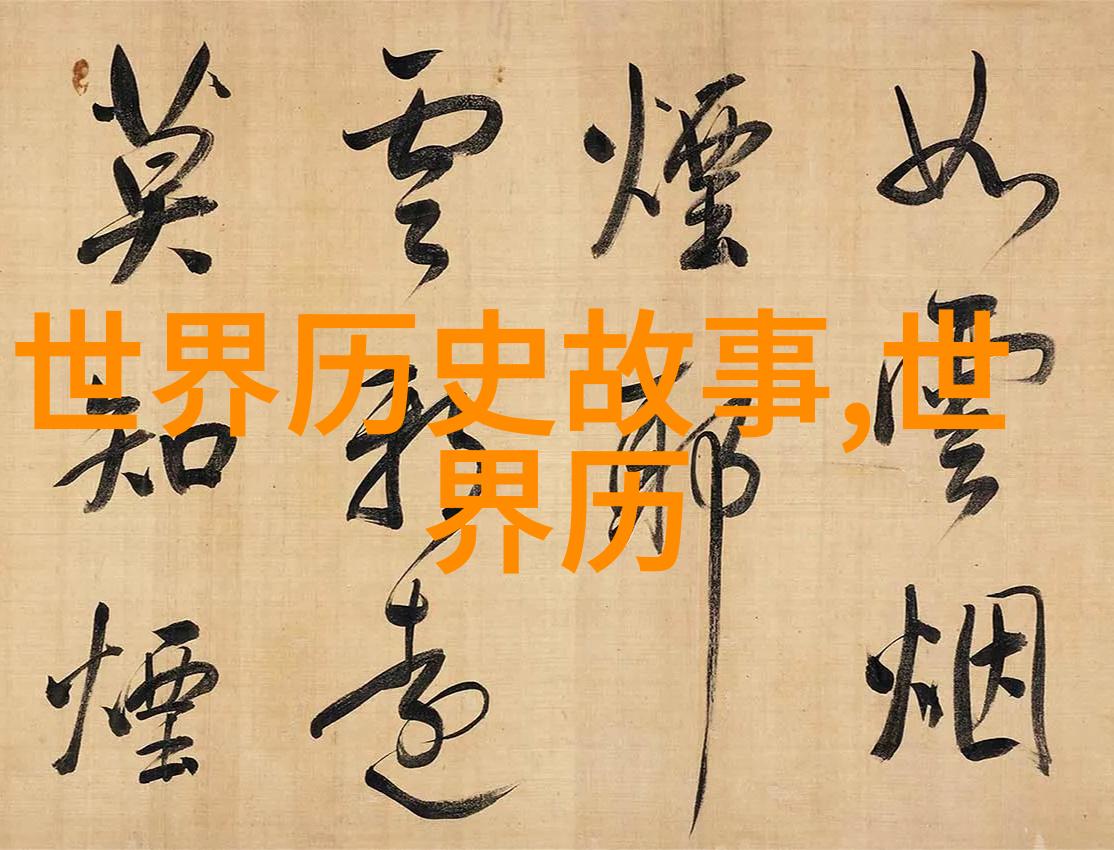 世界历史故事,世
界历
如雲烟
煙耶
雲耶遠
莫知煙